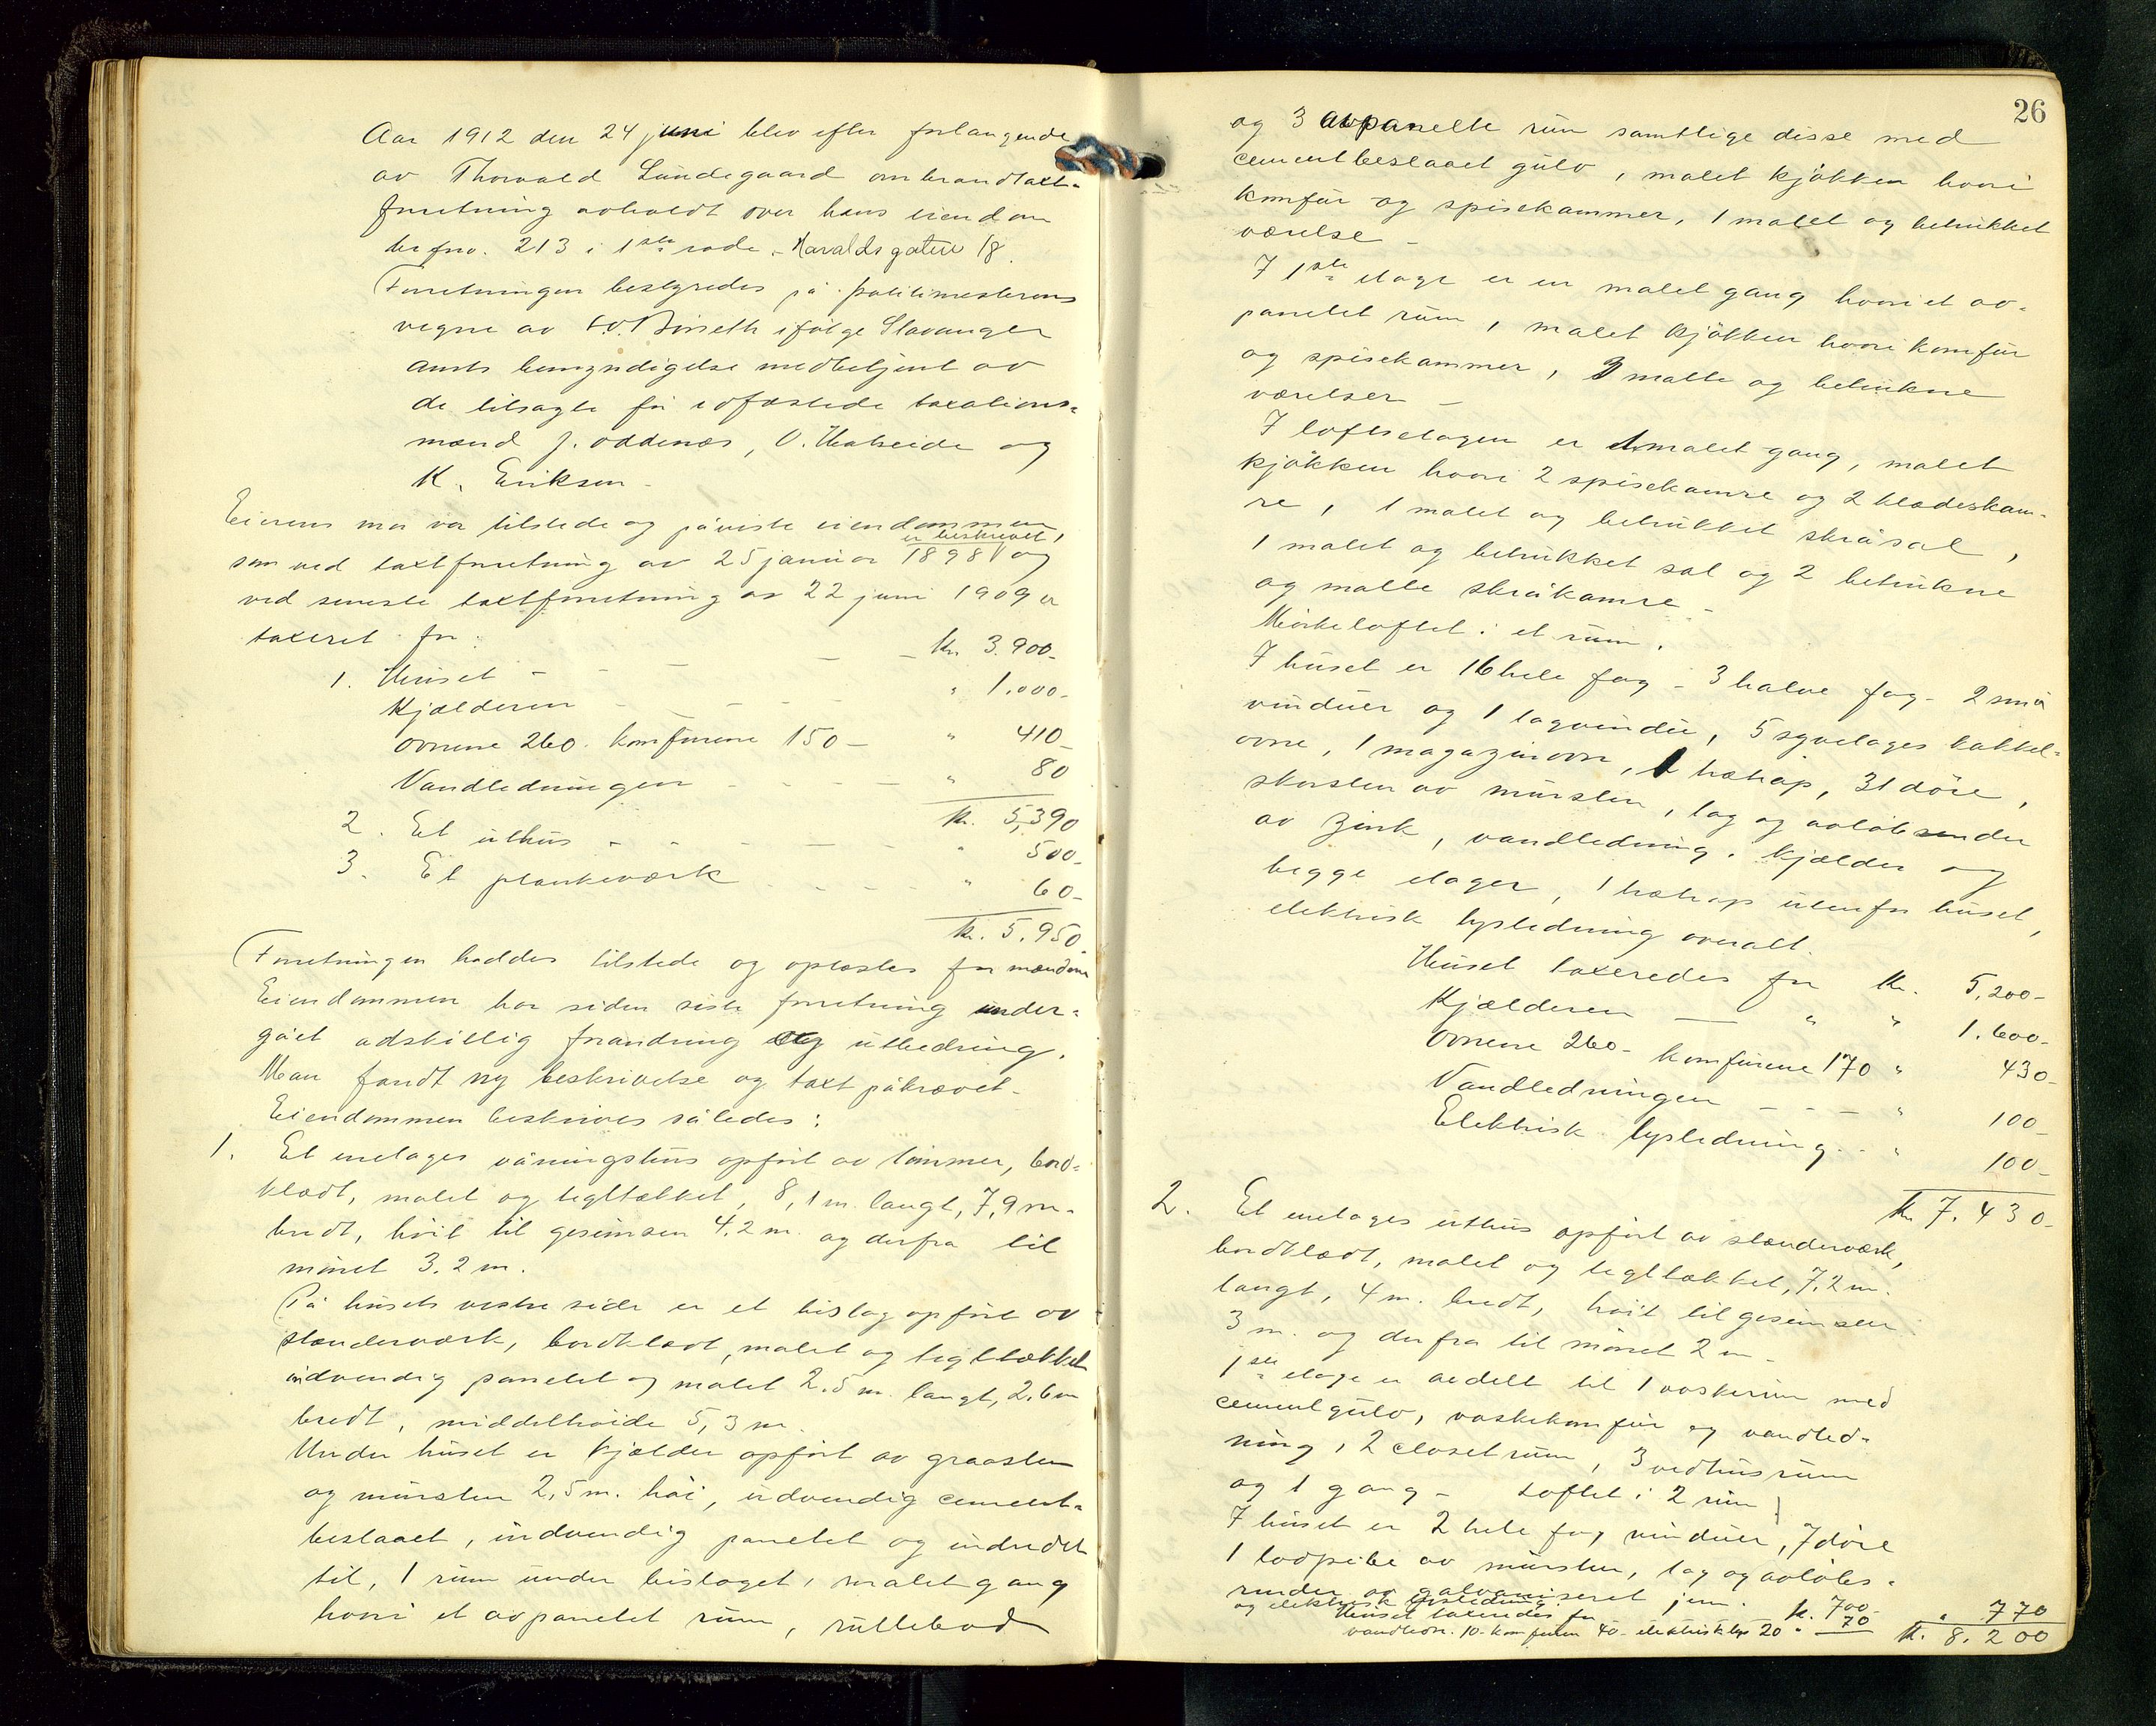 Aar 1912 den 24 juni blev efter forlangende
av Thorvald Lundegaard ombrandtakt-
forretning avholdt over hans eiendom
br fno. 213 i 1ste rode. Haraldsgaten 18.
Forretningen bestyredes på politimesterens
vegne av ifölge Stavanger
amts bemyndigelse medbetjent av
de tilsagte før edfæstede taxations-
mænd J. Oddenæs, O. Hatseide og
K. Eriksen -
Eierens mor var tilstede og påviste eiendommen,
er beskrevet
som ved taxtforretning av 25 januar 1898 og
ved seneste taxtforretning av 22 juni 1909 er
taxeret for:
1. Huset - - - - - Kr. 3.900-
Kjælderen - - - - " 1.000-
Ovnene 260. komfurene 150 - " 410-
Vandledningen - - - - " 80
Kr. 5,390
2. Et uthus - - - - - " 500-
3. Et plankeværk - - - - " 60-
Kr. 5.950
Forretningen haddes tilstede og oplæstes for mændene
Eiendommen har siden siste forretning under-
gået adskillig forandring og utbedring.
Man fandt ny beskrivelse og taxt påkrævet -
Eiendommen beskrives således:
1. Et enetages våningshus opfört av tömmer, bord-
klædt, malet og tegltækket, 8,1 m. langt, 7,9 m.
bredt, höit til gesimsen 4.2 m. og derfra til
mönet 3.2 m.
På husets vestre side er et bislag opfört av
stænderværk, bordklædt, malet og tegltækket
indvendig panelet og malet 2.5 m. langt, 2.6 m
bredt, middelhöide 5,3 m.
Under huset er kjælder opfört av graasten
og mursten 2,5 m. höi, udvendig cement-
beslaaet, indvendig panelet og indredet
til, 1 rum under bislaget, malet gang
hvori et avpanelet rum, rullebod
26
og 3 avpanelte rum samtlige disse med
cementbeslaaet gulv, malet kjökken hvori
komfur og spisekammer, 1 malet og betrukket
værelse -
I 1ste etage er en malet gang hvori et av-
panelet rum, malet kjökken hvori komfur
og spisekammer, 3 malte og betrukne
værelser -
I loftsetagen er 1 malet gang, malet
kjökken hvori 2 spisekamre og 2 klædeskam-
re, 1 malet og betrukket skråsal,
1 malet og betrukket sal og 2 betrukne
og malte skråkamre -
Mörkeloftet: et rum.
I huset er 16 hele fag - 3 halve fag - 2 små
vinduer og 1 tagvindu, 5 syvetages kakkel-
ovne, 1 magazinovn, 1 trætrap, 31 döre,
skorsten av mursten, tag og avlöbsrender
av zink, vandledning i kjælder og
begge etager, 1 trætrap utenfor huset,
elektrisk lysledning overalt.
Huset taxeredes for Kr. 5,200-
Kjælderen — " " 1.600-
Ovnene 260- komfurene 170 " 430-
Vandledningen - - - " 100-
Elektrisk lysledning - - " 100-
Kr. 7.430-
2. Et enetages uthus opfört av stænderværk,
bordklædt, malet og tegltækket, 7,2 m.
langt, 4 m. bredt, höit til gesimsen
3 m. og derfra til mönet 2 m -
1ste etage er avdelt til 1 vaskerum med
cementgulv, vaskekomfur og vandled-
ning, 2 closetrum, 3 vedhusrum
og 1 gang - Loftet: 2 rum
I huset er 2 hele fag vinduer, 7 döre
1 lodpibe av mursten, tag og avlöbs-
render av galvaniseret jern.
og elektrisk lysledning
Huset taxeredes for K. 700-
vandledn. 10- komfuren 40- elektrisk lys 20 " 70 " 770
K. 8.200